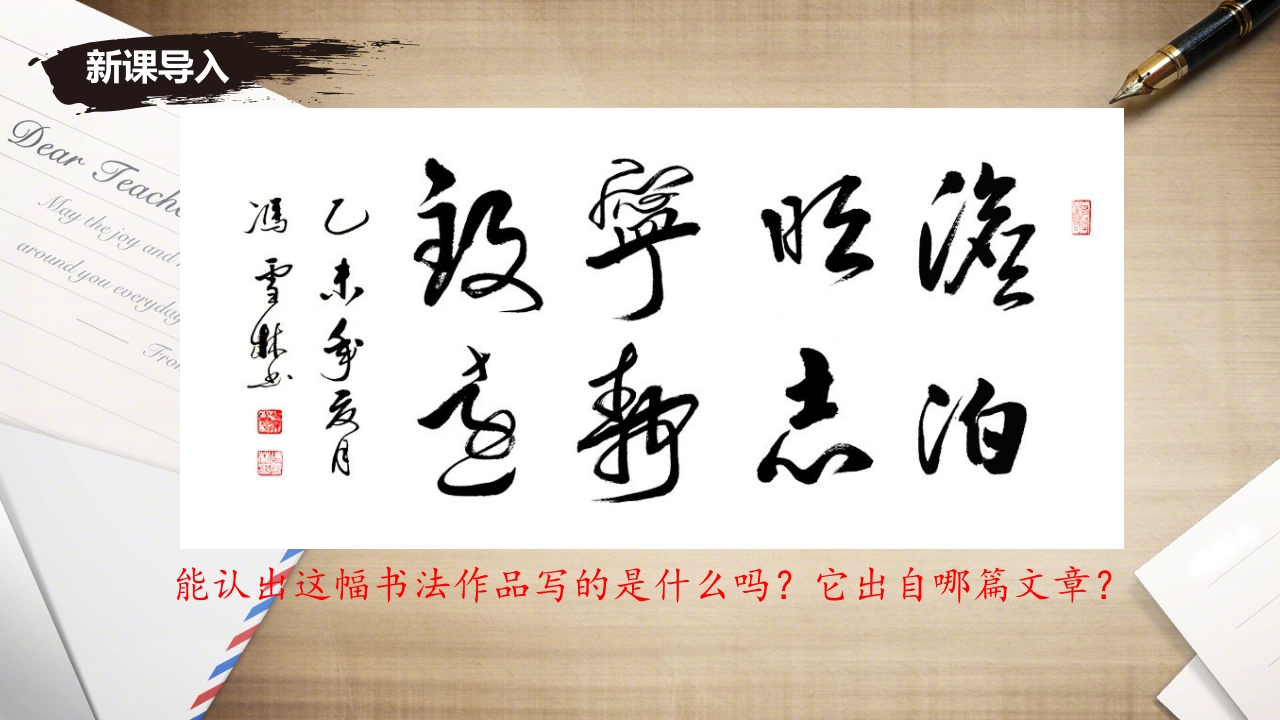 新课导入
Dear Teache
May the joy and
around you everyday
From
澹泊
明志
寧靜
致遠
乙未年夏月
馮雪林书
能认出这幅书法作品写的是什么吗？它出自哪篇文章？